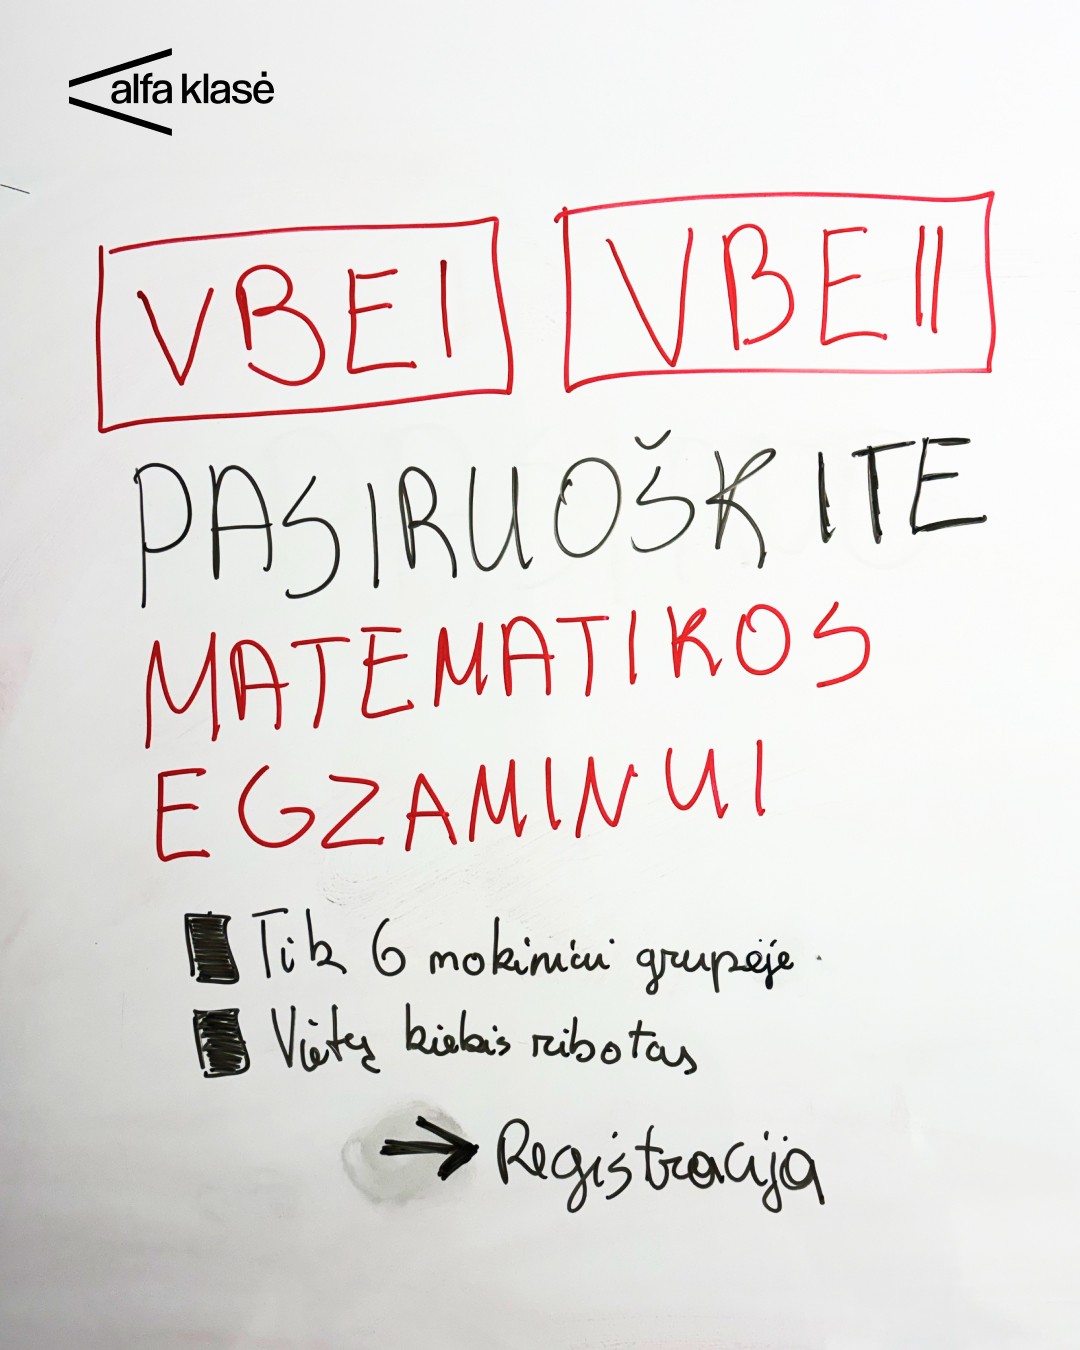 alfa klasė
VBE I VBE II
PASIRUOŠKITE
MATEMATIKOS
EGZAMINUI
Tik 6 mokiniai grupėje
Vietų kiekis ribotas
→ Registracija